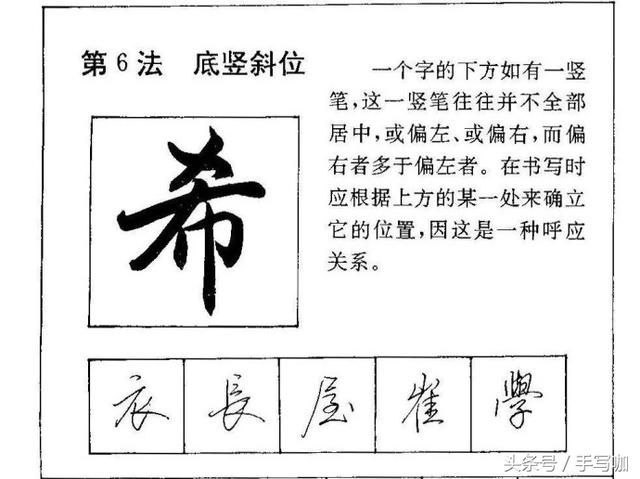 第6法　底竖斜位
一个字的下方如有一竖
笔,这一竖笔往往并不全部
居中,或偏左、或偏右,而偏
右者多于偏左者。在书写时
应根据上方的某一处来确立
它的位置,因这是一种呼应
关系。
希
衣 長 屋 崔 學
头条号 / 手写咖